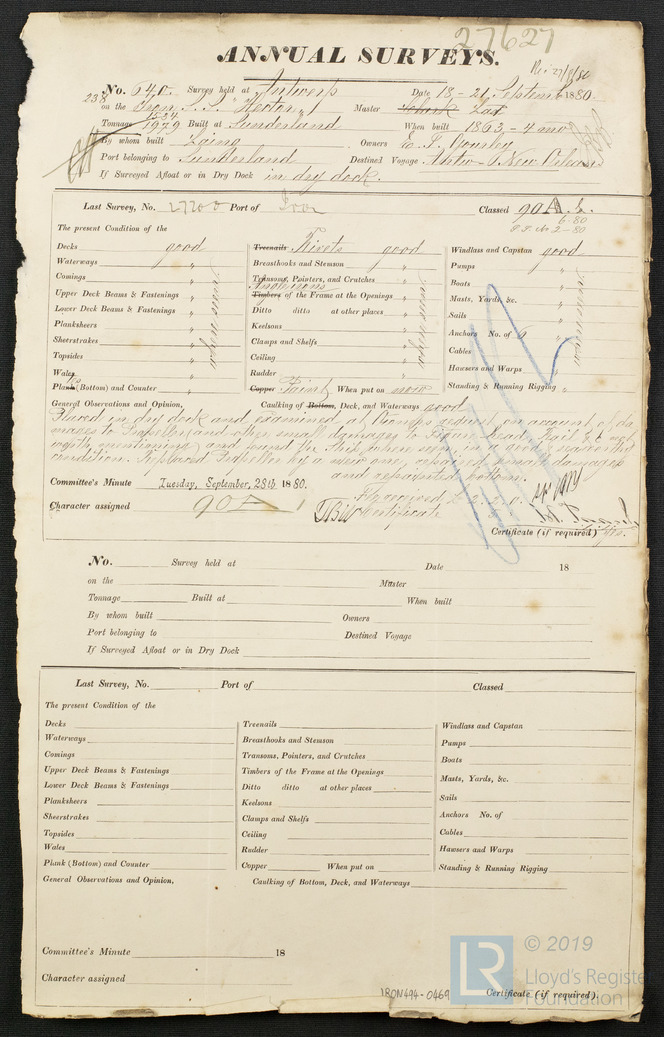 27627
ANNUAL SURVEYS.
No. 640. Survey held at Antwerp Date 18-21 September 1880
238 on the Iron S.S. Master
Tonnage 1534 1979 Built at Sunderland When built 1863 - 4 mo
By whom built Laing Owners
Port belonging to Sunderland Destined Voyage New Orleans
If Surveyed Afloat or in Dry Dock in dry dock.
Last Survey, No. 27200 Port of Iron Classed 90A
6-80
2-80
The present Condition of the
Decks good
Waterways "
Comings "
Upper Deck Beams & Fastenings "
Lower Deck Beams & Fastenings "
Planksheers "
Sheerstrakes "
Topsides "
Wales "
Plank (Bottom) and Counter "
Treenails Rivets good
Breasthooks and Stemson "
Transoms, Pointers, and Crutches "
Timbers of the Frame at the Openings "
Ditto ditto at other places "
Keelsons "
Clamps and Shelfs "
Ceiling "
Rudder "
Copper Paint When put on now
Windlass and Capstan good
Pumps "
Boats "
Masts, Yards, &c. "
Sails "
Anchors No. of 6 "
Cables "
Hawsers and Warps "
Standing & Running Rigging "
General Observations and Opinion, Caulking of Bottom, Deck, and Waterways good
Placed in dry dock and examined at request on account of da
mages to Propeller and other small damages to
worth mentioning and found the Ship where seen in a good & seaworthy
condition. Replaced Propeller by a new one, repaired small damages
and repainted bottom.
Committee's Minute Tuesday, September, 28th 1880.
Character assigned 90A
received £ 2. 2. 0.
Certificate
Certificate (if required)
No. Survey held at Date 18
on the Master
Tonnage Built at When built
By whom built Owners
Port belonging to Destined Voyage
If Surveyed Afloat or in Dry Dock
Last Survey, No. Port of Classed
The present Condition of the
Decks
Waterways
Comings
Upper Deck Beams & Fastenings
Lower Deck Beams & Fastenings
Planksheers
Sheerstrakes
Topsides
Wales
Plank (Bottom) and Counter
Treenails
Breasthooks and Stemson
Transoms, Pointers, and Crutches
Timbers of the Frame at the Openings
Ditto ditto at other places
Keelsons
Clamps and Shelfs
Ceiling
Rudder
Copper When put on
Windlass and Capstan
Pumps
Boats
Masts, Yards, &c.
Sails
Anchors No. of
Cables
Hawsers and Warps
Standing & Running Rigging
General Observations and Opinion, Caulking of Bottom, Deck, and Waterways
Committee's Minute 18
Character assigned
IRON494-0469 Certificate (if required).
LR © 2019
Lloyd's Register
Foundation